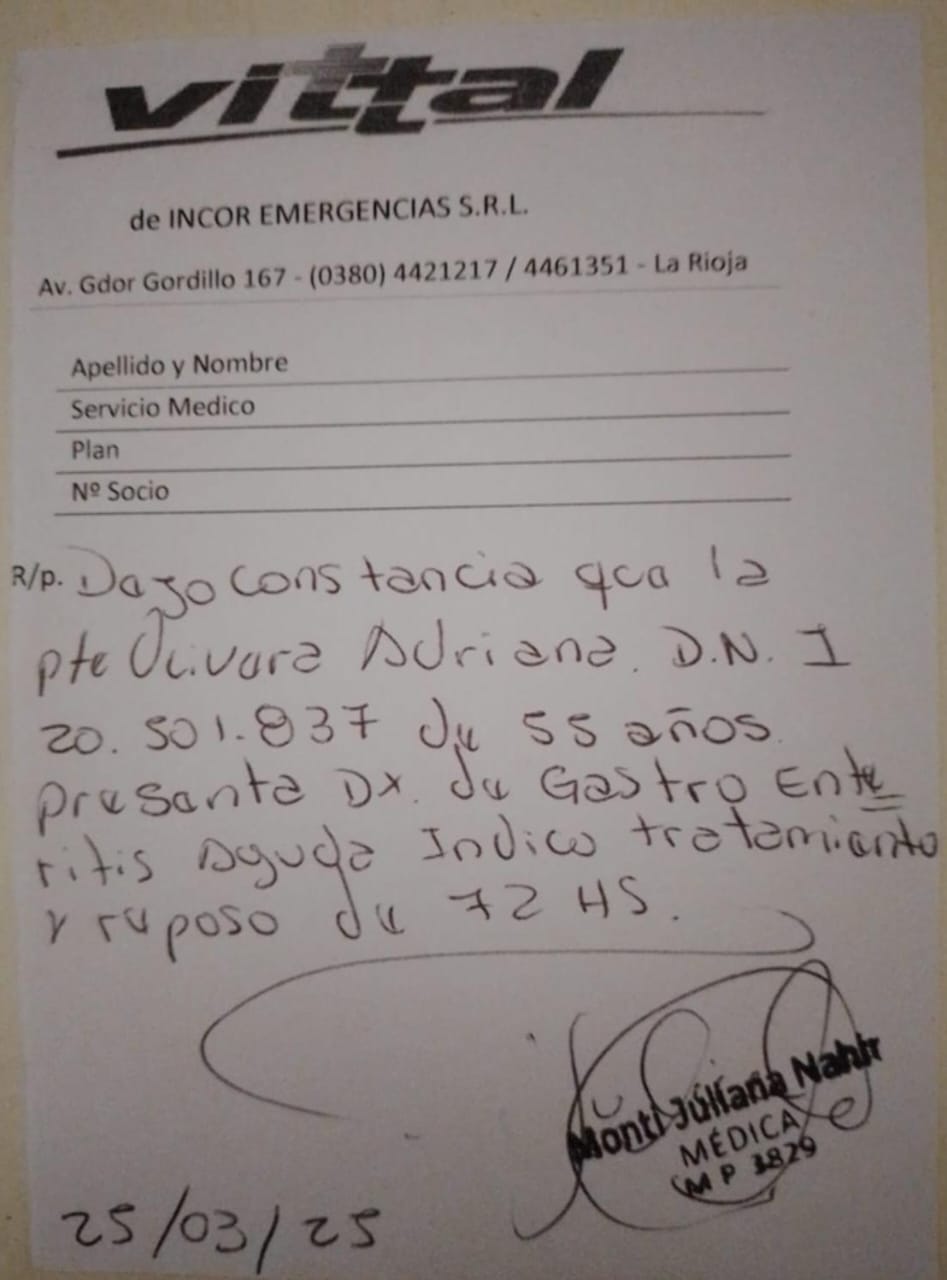 vittal
de INCOR EMERGENCIAS S.R.L.
Av. Gdor Gordillo 167 - (0380) 4421217 / 4461351 - La Rioja
Apellido y Nombre
Servicio Medico
Plan
Nº Socio
R/p. Dejo constancia que la
pte Olivera Adriana. D.N.I
20.501.837 de 55 años.
presenta Dx. de Gastro Ente
ritis Aguda Indico tratamiento
y reposo de 72 HS.
Monti Juliana Nahir
MÉDICA
M P 3829
25/03/25